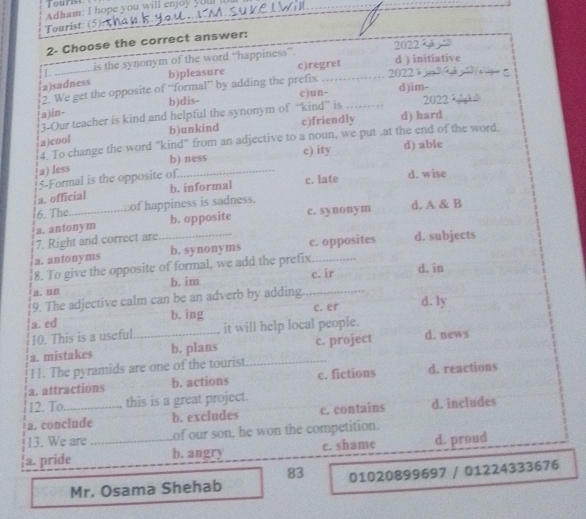 Adham: I hope you will enjoy your
Tourist: (5) thank you. I'M sure I will
2- Choose the correct answer:
1. ........is the synonym of the word "happiness".
a)sadness b)pleasure c)regret d ) initiative
2. We get the opposite of "formal" by adding the prefix ................ 2022
a)in- b)dis- c)un- d)im-
3-Our teacher is kind and helpful the synonym of "kind" is ......... 2022
a)cool b)unkind c)friendly d) hard
4. To change the word "kind" from an adjective to a noun, we put .at the end of the word.
a) less b) ness c) ity d) able
5-Formal is the opposite of..................
a. official b. informal c. late d. wise
6. The...............of happiness is sadness.
a. antonym b. opposite c. synonym d. A & B
7. Right and correct are..................
a. antonyms b. synonyms c. opposites d. subjects
8. To give the opposite of formal, we add the prefix............
a. un b. im c. ir d. in
9. The adjective calm can be an adverb by adding................
a. ed b. ing c. er d. ly
10. This is a useful....................., it will help local people.
a. mistakes b. plans c. project d. news
11. The pyramids are one of the tourist....................
a. attractions b. actions c. fictions d. reactions
12. To..............., this is a great project.
a. conclude b. excludes c. contains d. includes
13. We are ....................of our son, he won the competition.
a. pride b. angry c. shame d. proud
Mr. Osama Shehab 83 01020899697 / 01224333676